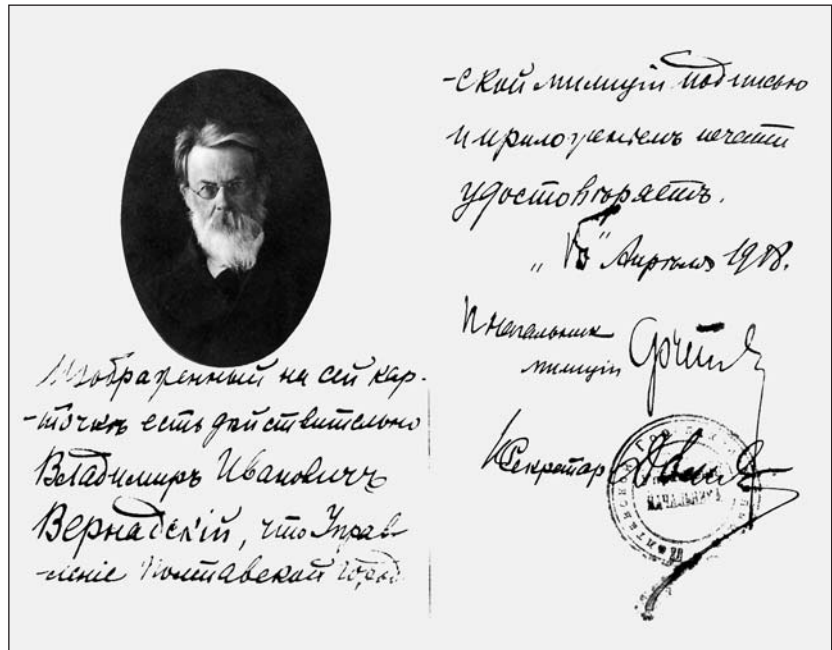 Изображенный на сей кар-
-точкѣ есть дѣйствительно
Владимиръ Ивановичъ
Вернадскій, что Управ-
-леніе Полтавской Город-
-ской милиціи подписью
и приложеніемъ печати
удостовѣряетъ.
" " Апрѣля 1918.
Начальник
милиціи
Секретар